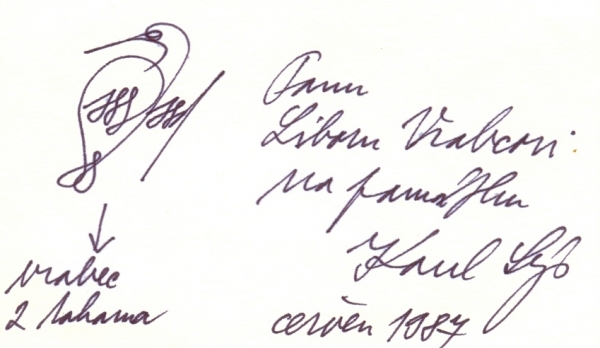 Panu
Liboru Vrabcovi
na památku
Karel Sýs
červen 1987
vrabec
2 tahama